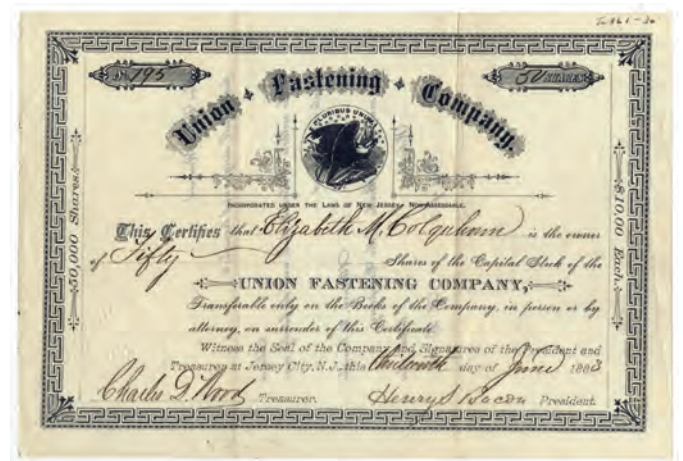 No. 195
50 SHARES
Union Fastening Company.
E PLURIBUS UNUM
INCORPORATED UNDER THE LAWS OF NEW JERSEY. NON-ASSESSABLE.
50,000 Shares.
$10.00 Each.
This Certifies that Elizabeth M. Colquhoun is the owner
of Fifty Shares of the Capital Stock of the
UNION FASTENING COMPANY,
Transferable only on the Books of the Company, in person or by
attorney, on surrender of this Certificate.
Witness the Seal of the Company and Signatures of the President and
Treasurer at Jersey City, N.J., this thirteenth day of June 1883
Charles D. Wood Treasurer. Henry S Bacon President.